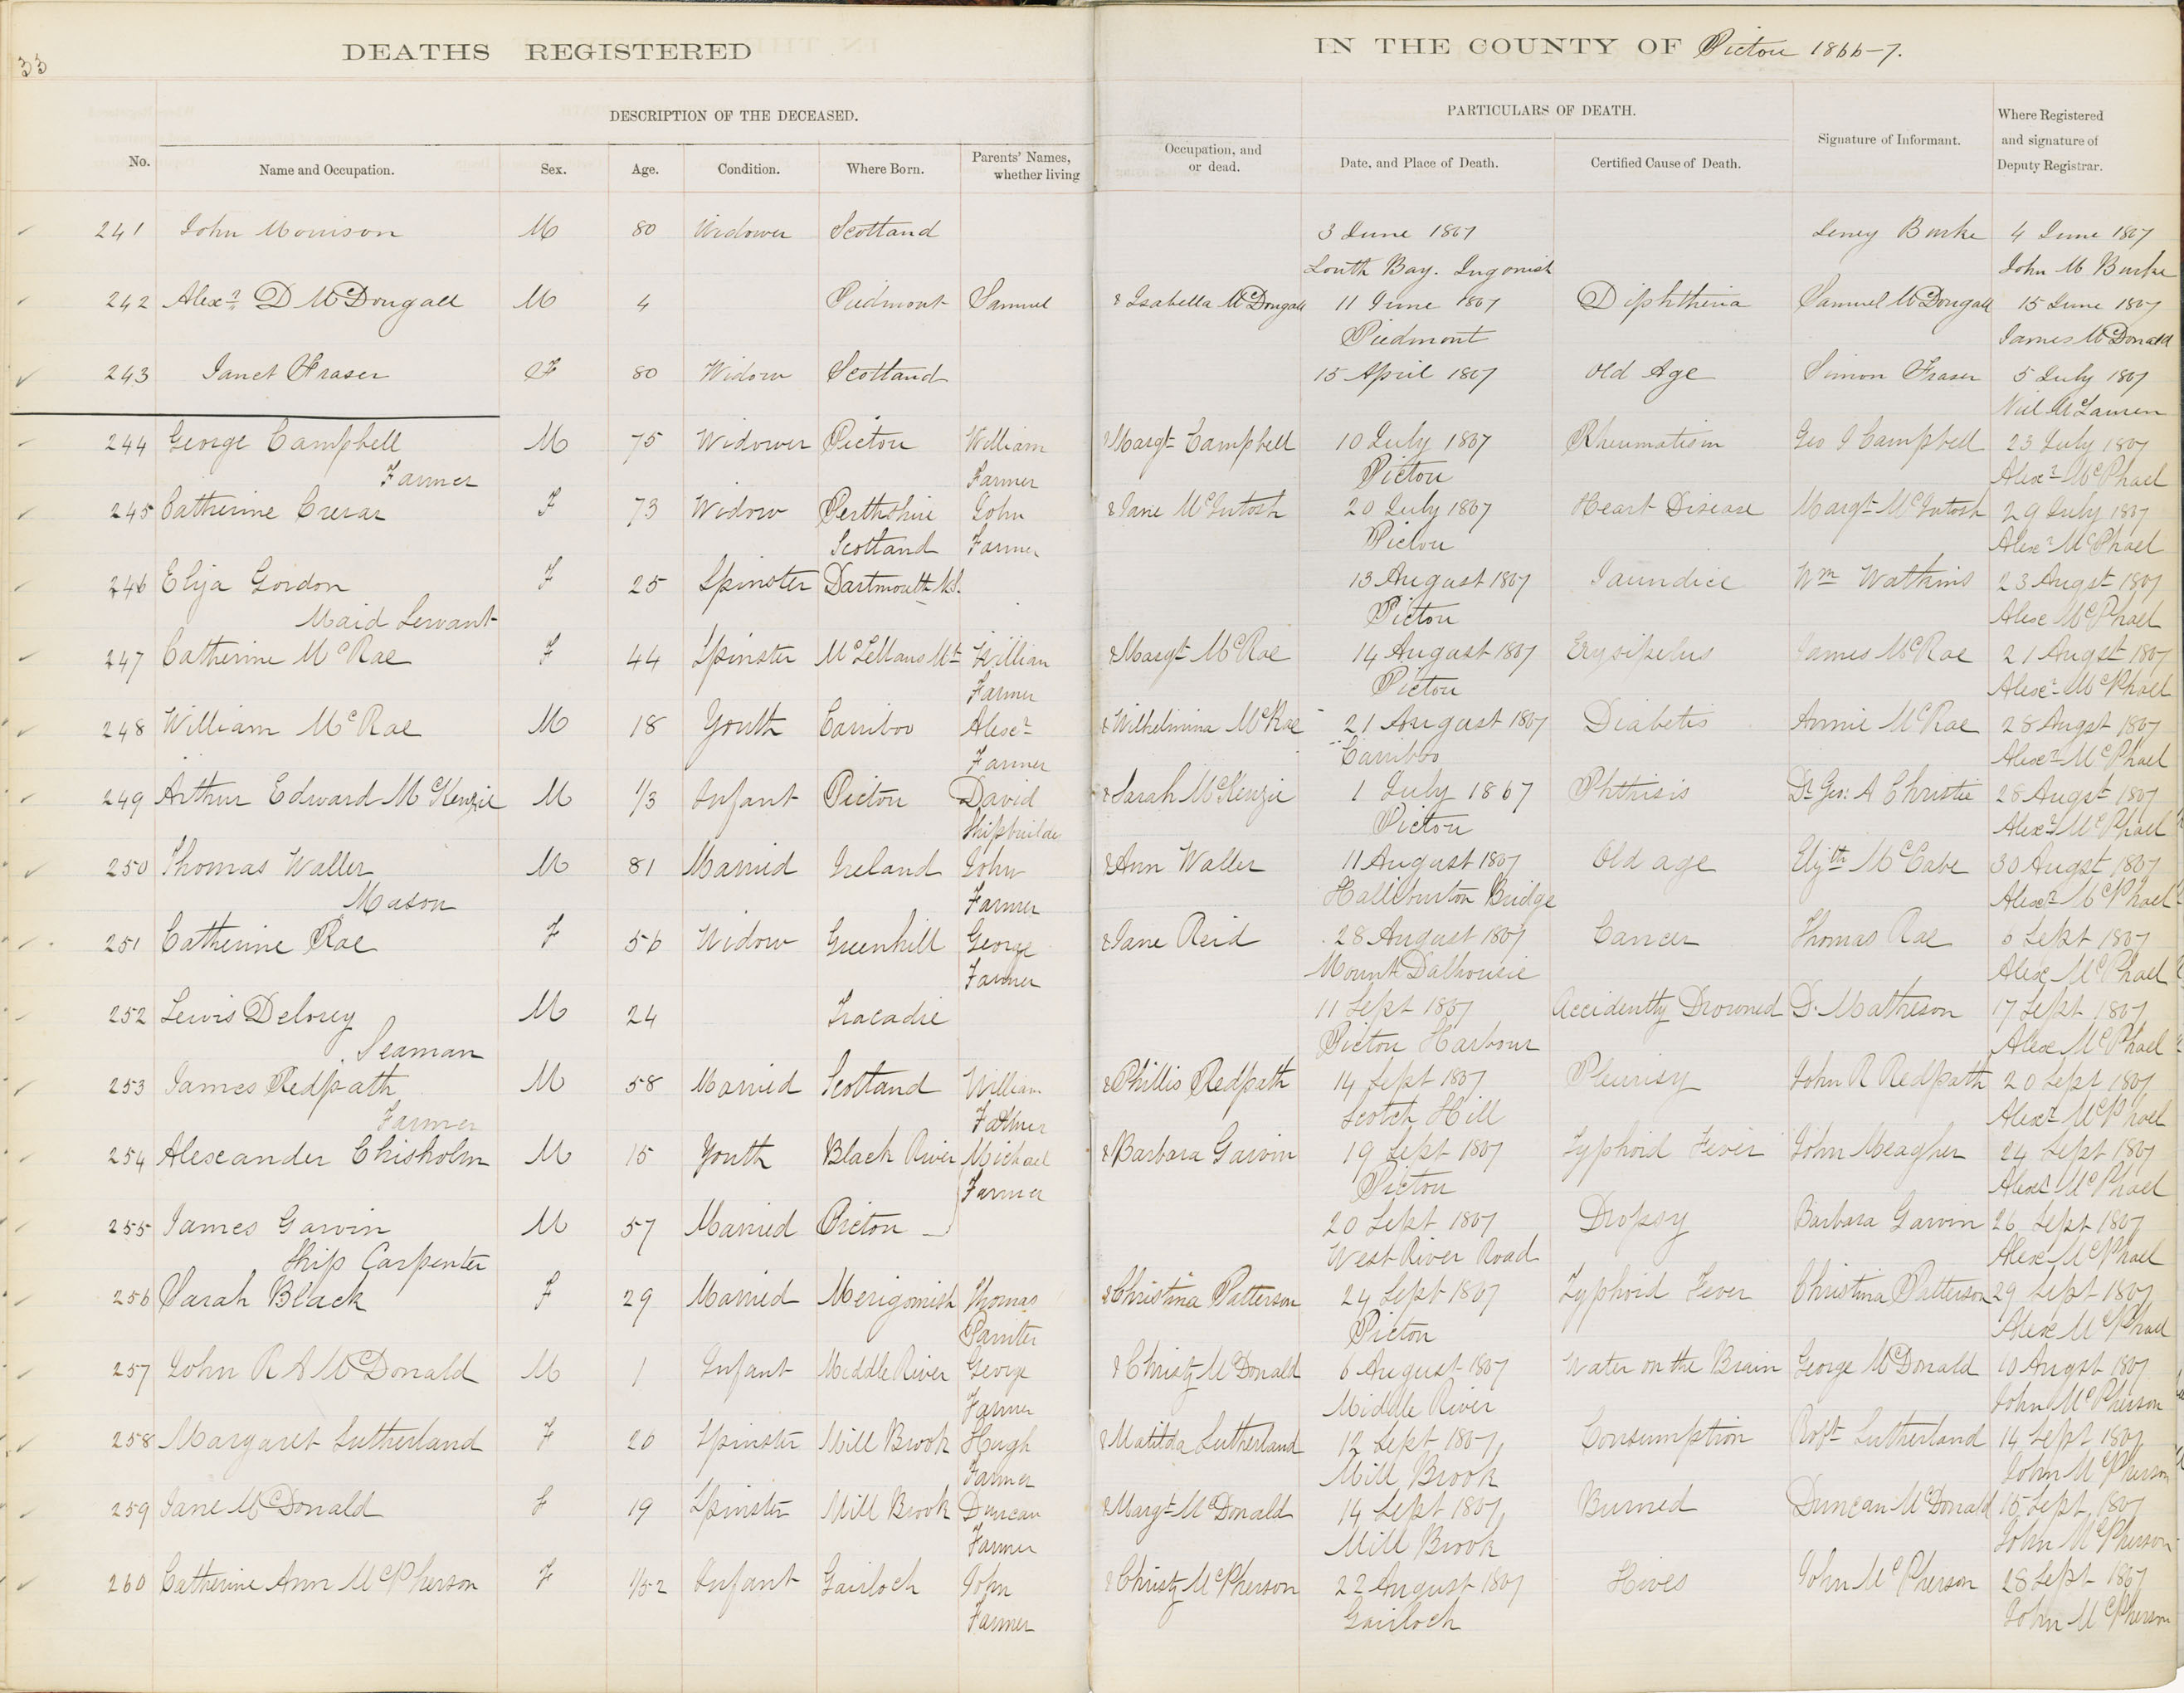 33
DEATHS REGISTERED IN THE COUNTY OF Pictou 1866-7.
DESCRIPTION OF THE DECEASED. PARTICULARS OF DEATH.
No. Name and Occupation. Sex. Age. Condition. Where Born. Parents' Names, whether living Occupation, and or dead. Date, and Place of Death. Certified Cause of Death. Signature of Informant. Where Registered and signature of Deputy Registrar.
241 John Morrison M 80 Widower Scotland 3 June 1867 Burke 4 June 1867
South Bay. Ingonish John M Burke
242 Alexr D McDougall M 4 Piedmont Samuel & Isabella McDougall 11 June 1867 Diphtheria Samuel McDougall 15 June 1867
Piedmont James McDonald
243 Janet Fraser F 80 Widow Scotland 15 April 1867 Old Age Simon Fraser 5 July 1867
Neil McLauren
244 George Campbell M 75 Widower Pictou William & Margt Campbell 10 July 1867 Rheumatism Geo J Campbell 23 July 1867
Farmer Farmer Pictou Alexr McPhael
245 Catherine Crerar F 73 Widow Perthshire John & Jane McIntosh 20 July 1867 Heart Disease Margt McIntosh 29 July 1867
Scotland Farmer Pictou Alexr McPhael
246 Eliza Gordon F 25 Spinster Dartmouth N.S. 13 August 1867 Jaundice Wm Watkins 23 Augst 1867
Maid Servant Pictou Alex McPhael
247 Catherine McRae F 44 Spinster McLellans Mt William & Margt McRae 14 August 1867 Erysipelus James McRae 21 Augst 1867
Farmer Pictou Alexr McPhael
248 William McRae M 18 Youth Carriboo Alexr & Wilhelmina McRae 21 August 1867 Diabetis Annie McRae 28 Augst 1867
Farmer Carriboo Alexr McPhael
249 Arthur Edward McKenzie M 1/3 Infant Pictou David & Sarah McKenzie 1 July 1867 Phthisis Dr Geo: A Christie 28 Augst 1867
Shipbuilder Pictou Alexr McPhael
250 Thomas Waller M 81 Married Ireland John & Ann Waller 11 August 1867 Old age Elizth McCabe 30 Augst 1867
Mason Farmer Halliburton Bridge Alexr McPhael
251 Catherine Rae F 56 Widow Greenhill George & Jane Reid 28 August 1867 Cancer Thomas Rae 6 Sept 1867
Farmer Mount Dalhousie Alex McPhael
252 Lewis Delorey M 24 Tracadie 11 Sept 1867 Accidently Drowned D. Matheson 17 Sept 1867
Seaman Pictou Harbour Alex McPhael
253 James Redpath M 58 Married Scotland William & Phillis Redpath 14 Sept 1867 Pleurisy John R Redpath 20 Sept 1867
Farmer Farmer Scotch Hill Alexr McPhael
254 Alexander Chisholm M 15 Youth Black River Michael & Barbara Garvin 19 Sept 1867 Typhoid Fever John Meagher 24 Sept 1867
Farmer Pictou Alexr McPhael
255 James Garvin M 57 Married Pictou 20 Sept 1867 Dropsy Barbara Garvin 26 Sept 1867
Ship Carpenter West River Road Alex McPhael
256 Sarah Black F 29 Married Merigomish Thomas & Christina Patterson 24 Sept 1867 Typhoid Fever Christina Patterson 29 Sept 1867
Painter Pictou Alex McPhael
257 John R A McDonald M 1 Infant Middle River George & Christy McDonald 6 August 1867 Water on the Brain George McDonald 10 Augst 1867
Farmer Middle River John McPherson
258 Margaret Sutherland F 20 Spinster Mill Brook Hugh & Matilda Sutherland 12 Sept 1867 Consumption Robt Sutherland 14 Sept 1867
Farmer Mill Brook John McPherson
259 Jane McDonald F 19 Spinster Mill Brook Duncan & Margt McDonald 14 Sept 1867 Burned Duncan McDonald 15 Sept 1867
Farmer Mill Brook John McPherson
260 Catherine Ann McPherson F 1/52 Infant Gairloch John & Christy McPherson 22 August 1867 Hives John McPherson 28 Sept 1867
Farmer Gairloch John McPherson